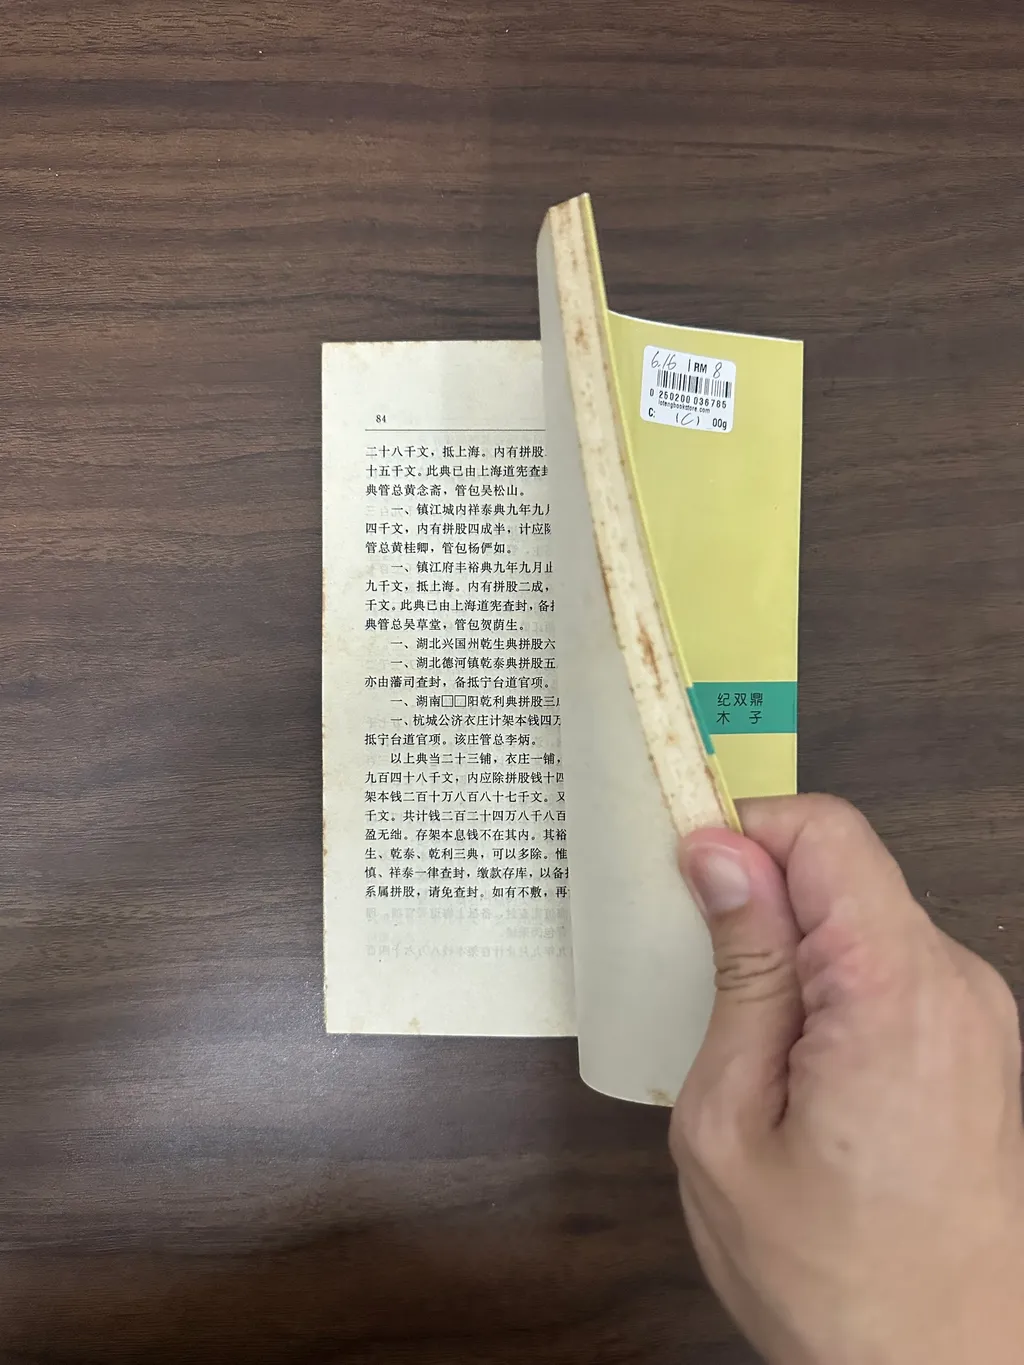 84
二十八千文，抵上海。内有拼股
十五千文。此典已由上海道宪查封
典管总黄念斋，管包吴松山。
一、镇江城内祥泰典九年九月
四千文，内有拼股四成半，计应除
管总黄桂卿，管包杨俨如。
一、镇江府丰裕典九年九月止
九千文，抵上海。内有拼股二成，
千文。此典已由上海道宪查封，备抵
典管总吴草堂，管包贺荫生。
一、湖北兴国州乾生典拼股六
一、湖北德河镇乾泰典拼股五
亦由藩司查封，备抵宁台道官项。
一、湖南□□阳乾利典拼股三
一、杭城公济衣庄计架本钱四万
抵宁台道官项。该庄管总李炳。
以上典当二十三铺，衣庄一铺，
九百四十八千文，内应除拼股钱十四
架本钱二百十万八百八十七千文。又
千文。共计钱二百二十四万八千八百
盈无绌。存架本息钱不在其内。其裕
生、乾泰、乾利三典，可以多除。惟
慎、祥泰一律查封，缴款存库，以备抵
系属拼股，请免查封。如有不敷，再
6.16 RM 8
0 250200 036785
lotengbookstore.com
C: (C) 00g
纪双鼎
木子